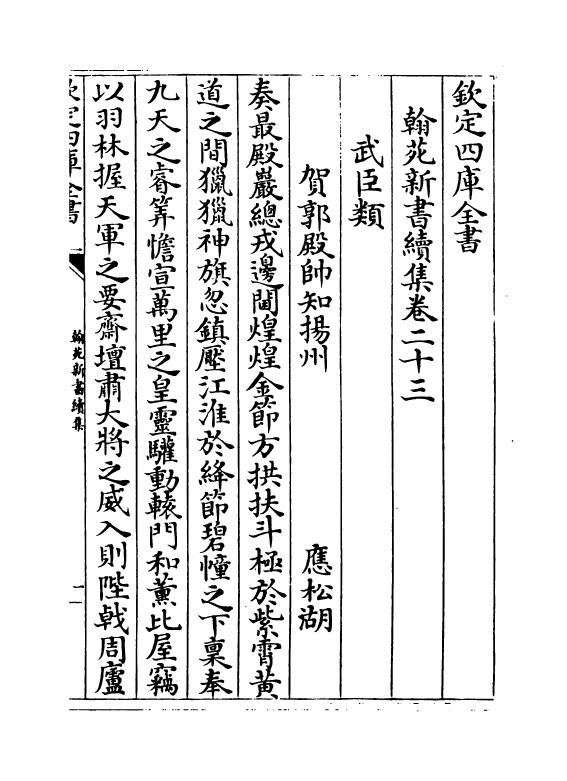 欽定四庫全書
翰苑新書續集卷二十三
武臣類
賀郭殿帥知揚州　應松湖
奏最殿巖總戎邊閫煌煌金節方拱扶斗極於紫霄黄
道之間獵獵神旗忽鎮壓江淮於絳節碧幢之下稟奉
九天之睿筭憺宣萬里之皇靈驩動轅門和薰比屋竊
以羽林握天軍之要齋壇肅大將之威入則陛戟周廬
欽定四庫全書
翰苑新書續集
一